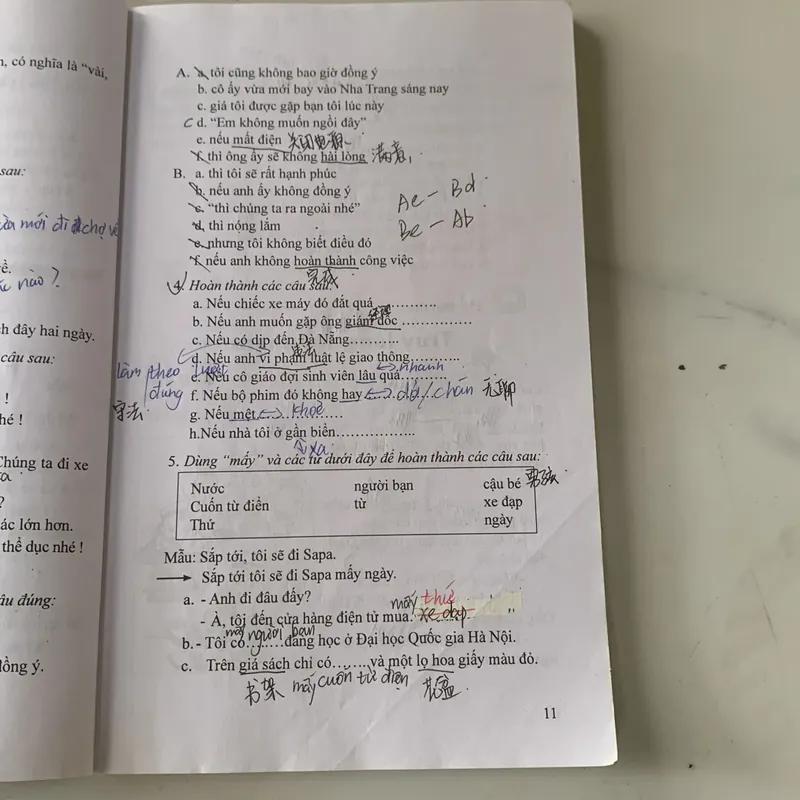 n, có nghĩa là “vài,
sau:
mới đi chợ về
ề.
nào?
h đây hai ngày.
câu sau:
!
hé !
Chúng ta đi xe
?
ác lớn hơn.
thể dục nhé !
âu đúng:
lồng ý.
A. a. tôi cũng không bao giờ đồng ý
b. cô ấy vừa mới bay vào Nha Trang sáng nay
c. giá tôi được gặp bạn tôi lúc này
C d. “Em không muốn ngồi đây”
e. nếu mất điện 关闭电源
f. thì ông ấy sẽ không hài lòng 满意
B. a. thì tôi sẽ rất hạnh phúc
b. nếu anh ấy không đồng ý
c. “thì chúng ta ra ngoài nhé”
d. thì nóng lắm
e. nhưng tôi không biết điều đó
f. nếu anh không hoàn thành công việc
Ae – Bd
Be – Ab
完成
4. Hoàn thành các câu sau:
a. Nếu chiếc xe máy đó đắt quá…………
b. Nếu anh muốn gặp ông giám đốc ……………
经理
c. Nếu có dịp đến Đà Nẵng………..
d. Nếu anh vi phạm luật lệ giao thông………..
làm theo luật
đúng
守法
e. Nếu cô giáo đợi sinh viên lâu quá………..
nhanh
f. Nếu bộ phim đó không hay dở, chán 无聊
g. Nếu mệt ……………
khoẻ
h.Nếu nhà tôi ở gần biển…………….
xa
5. Dùng “mấy” và các từ dưới đây để hoàn thành các câu sau:
Nước người bạn cậu bé 男孩
Cuốn từ điển từ xe đạp
Thứ ngày
Mẫu: Sắp tới, tôi sẽ đi Sapa.
Sắp tới tôi sẽ đi Sapa mấy ngày.
a. - Anh đi đâu đấy?
mấy thứ
- À, tôi đến cửa hàng điện tử mua. xe đạp
mấy người bạn
b. - Tôi có………đang học ở Đại học Quốc gia Hà Nội.
c. Trên giá sách chỉ có…….và một lọ hoa giấy màu đỏ.
书架 mấy cuốn từ điện 花盆
11